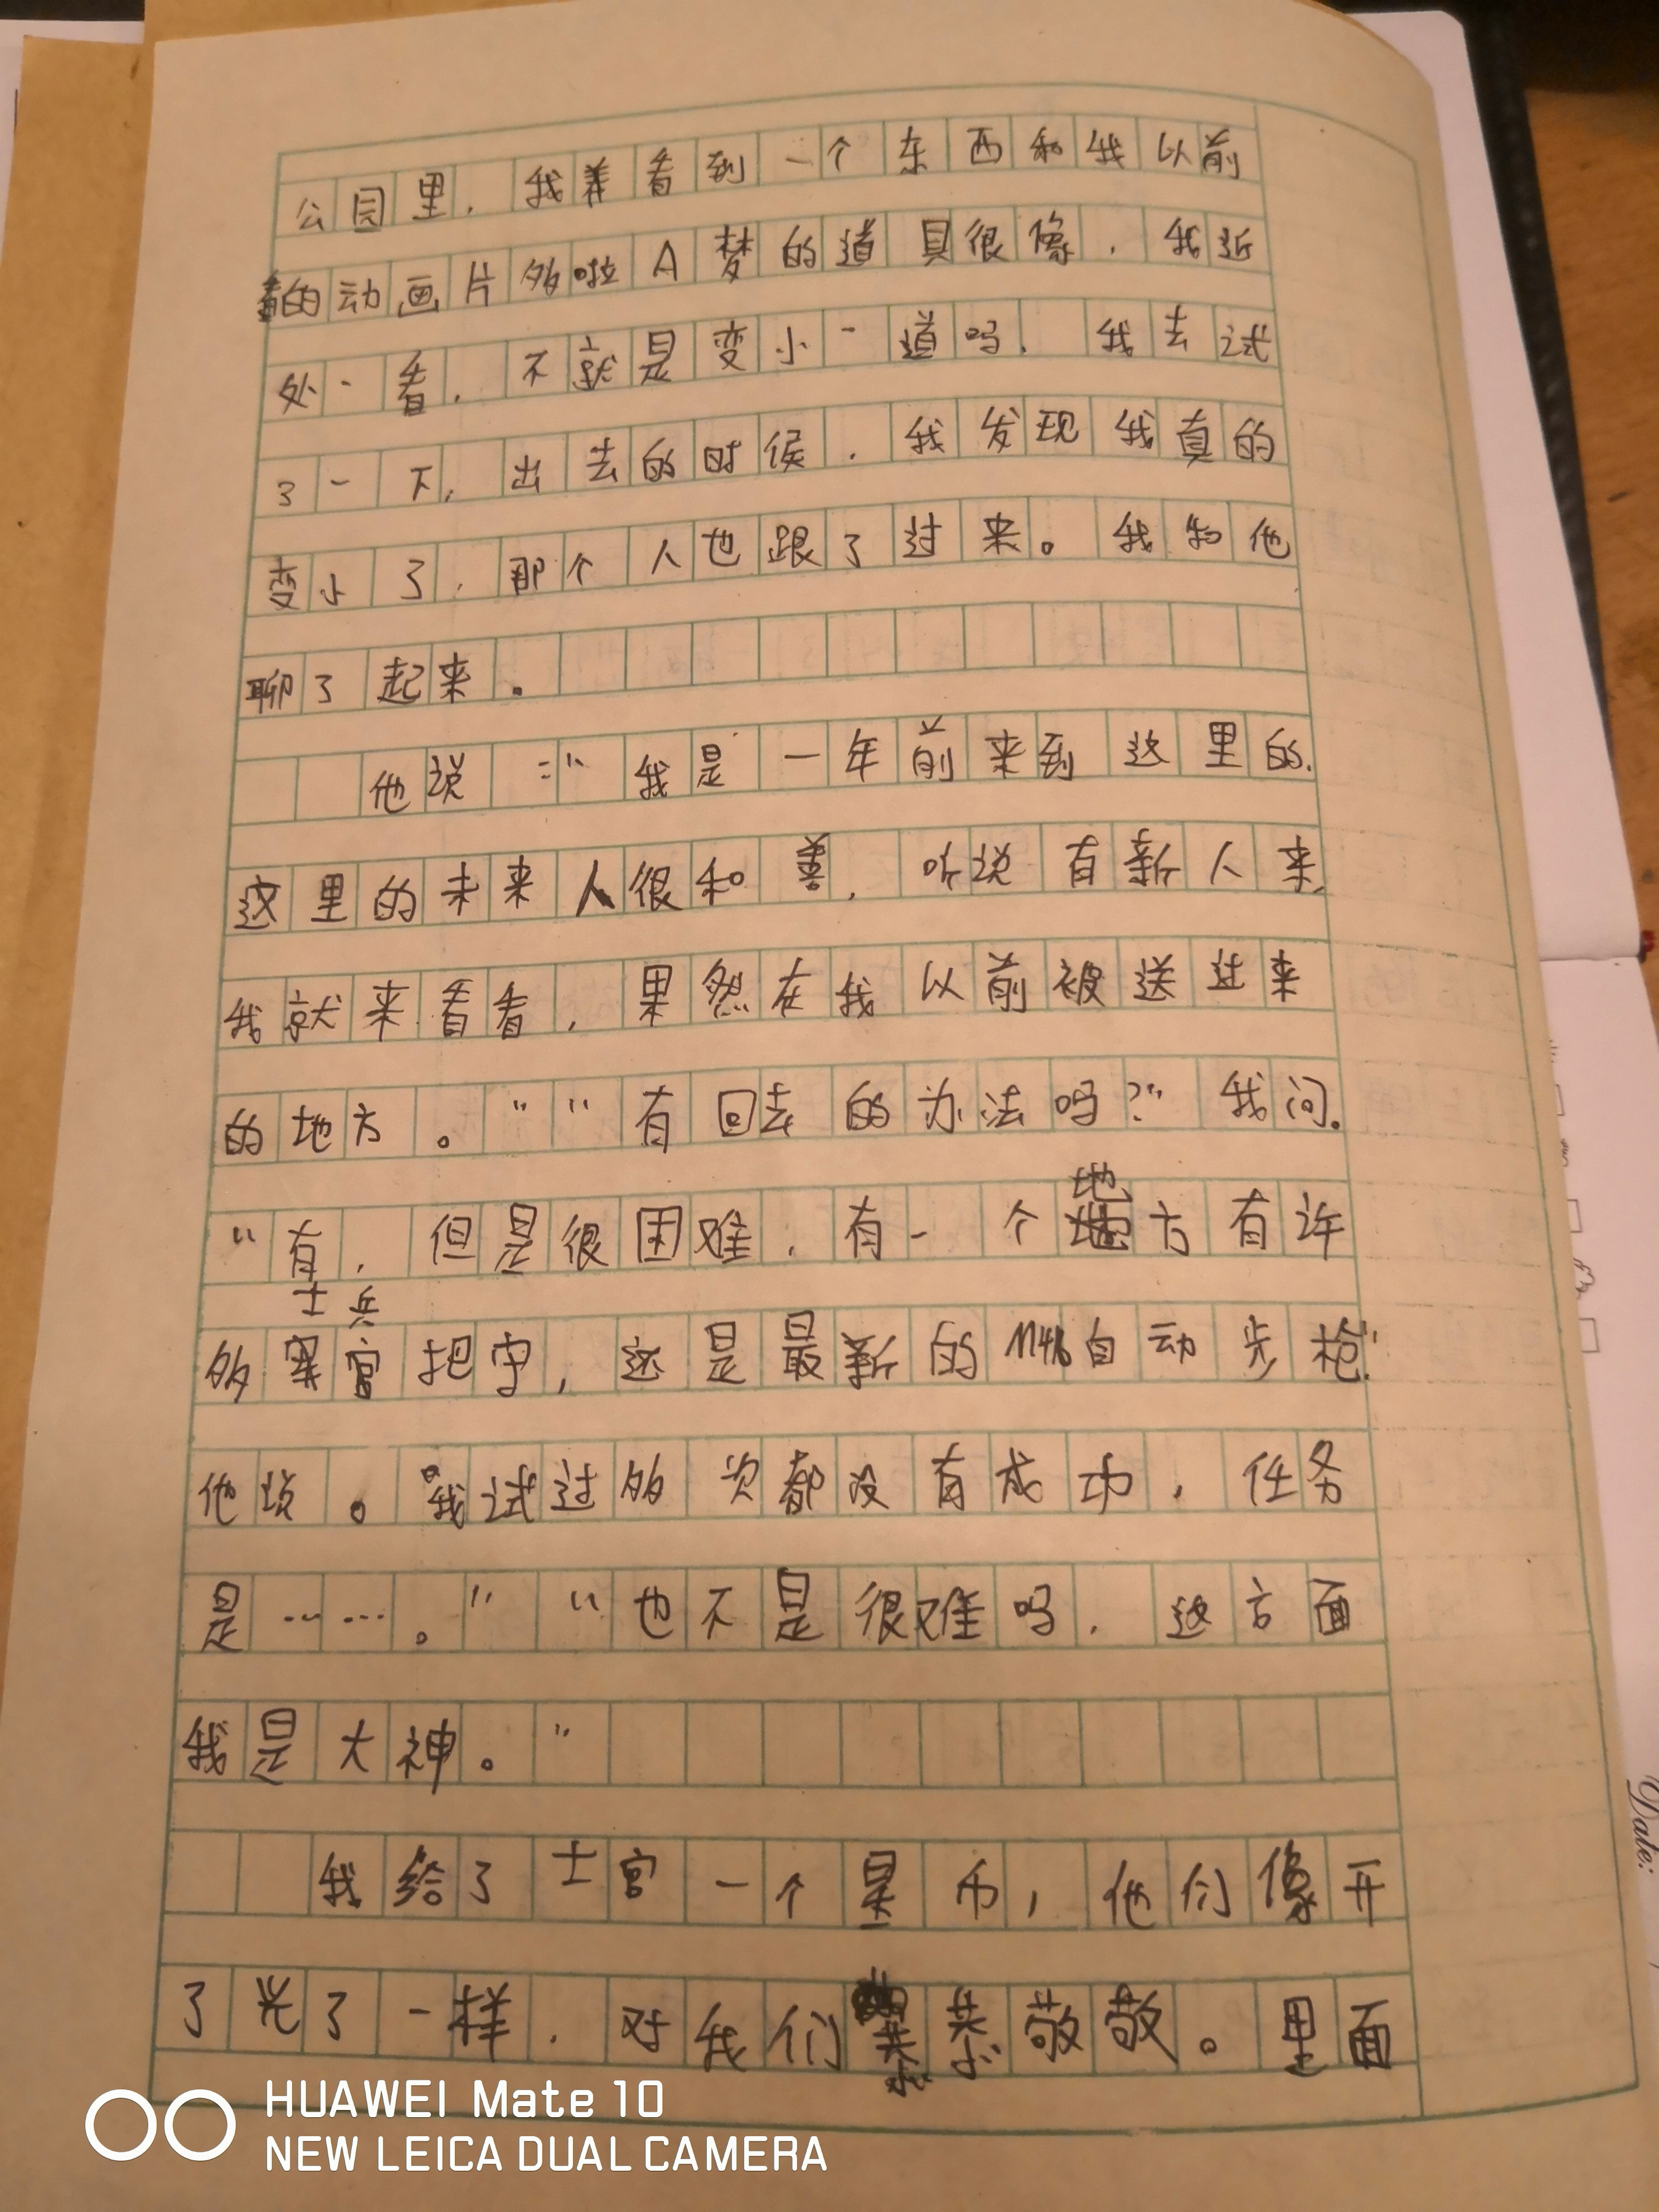 公园里，我看到一个东西和我以前
看的动画片多啦A梦的道具很像，我近
处一看，不就是变小一道吗，我去试
了一下，出去的时候，我发现我真的
变小了，那个人也跟了过来。我和他
聊了起来。
他说：“我是一年前来到这里的，
这里的未来人很和善，听说有新人来，
我就来看看，果然在我以前被送过来
的地方。”“有回去的办法吗？”我问。
“有，但是很困难，有一个地方有许
多士兵把守，还是最新的M416自动步枪”
他说。“我试过多次都没有成功，任务
是……。”“也不是很难吗，这方面
我是大神。”
我给了士官一个星币，他们像开
了光了一样，对我们恭恭敬敬。里面
HUAWEI Mate 10
NEW LEICA DUAL CAMERA
Date: